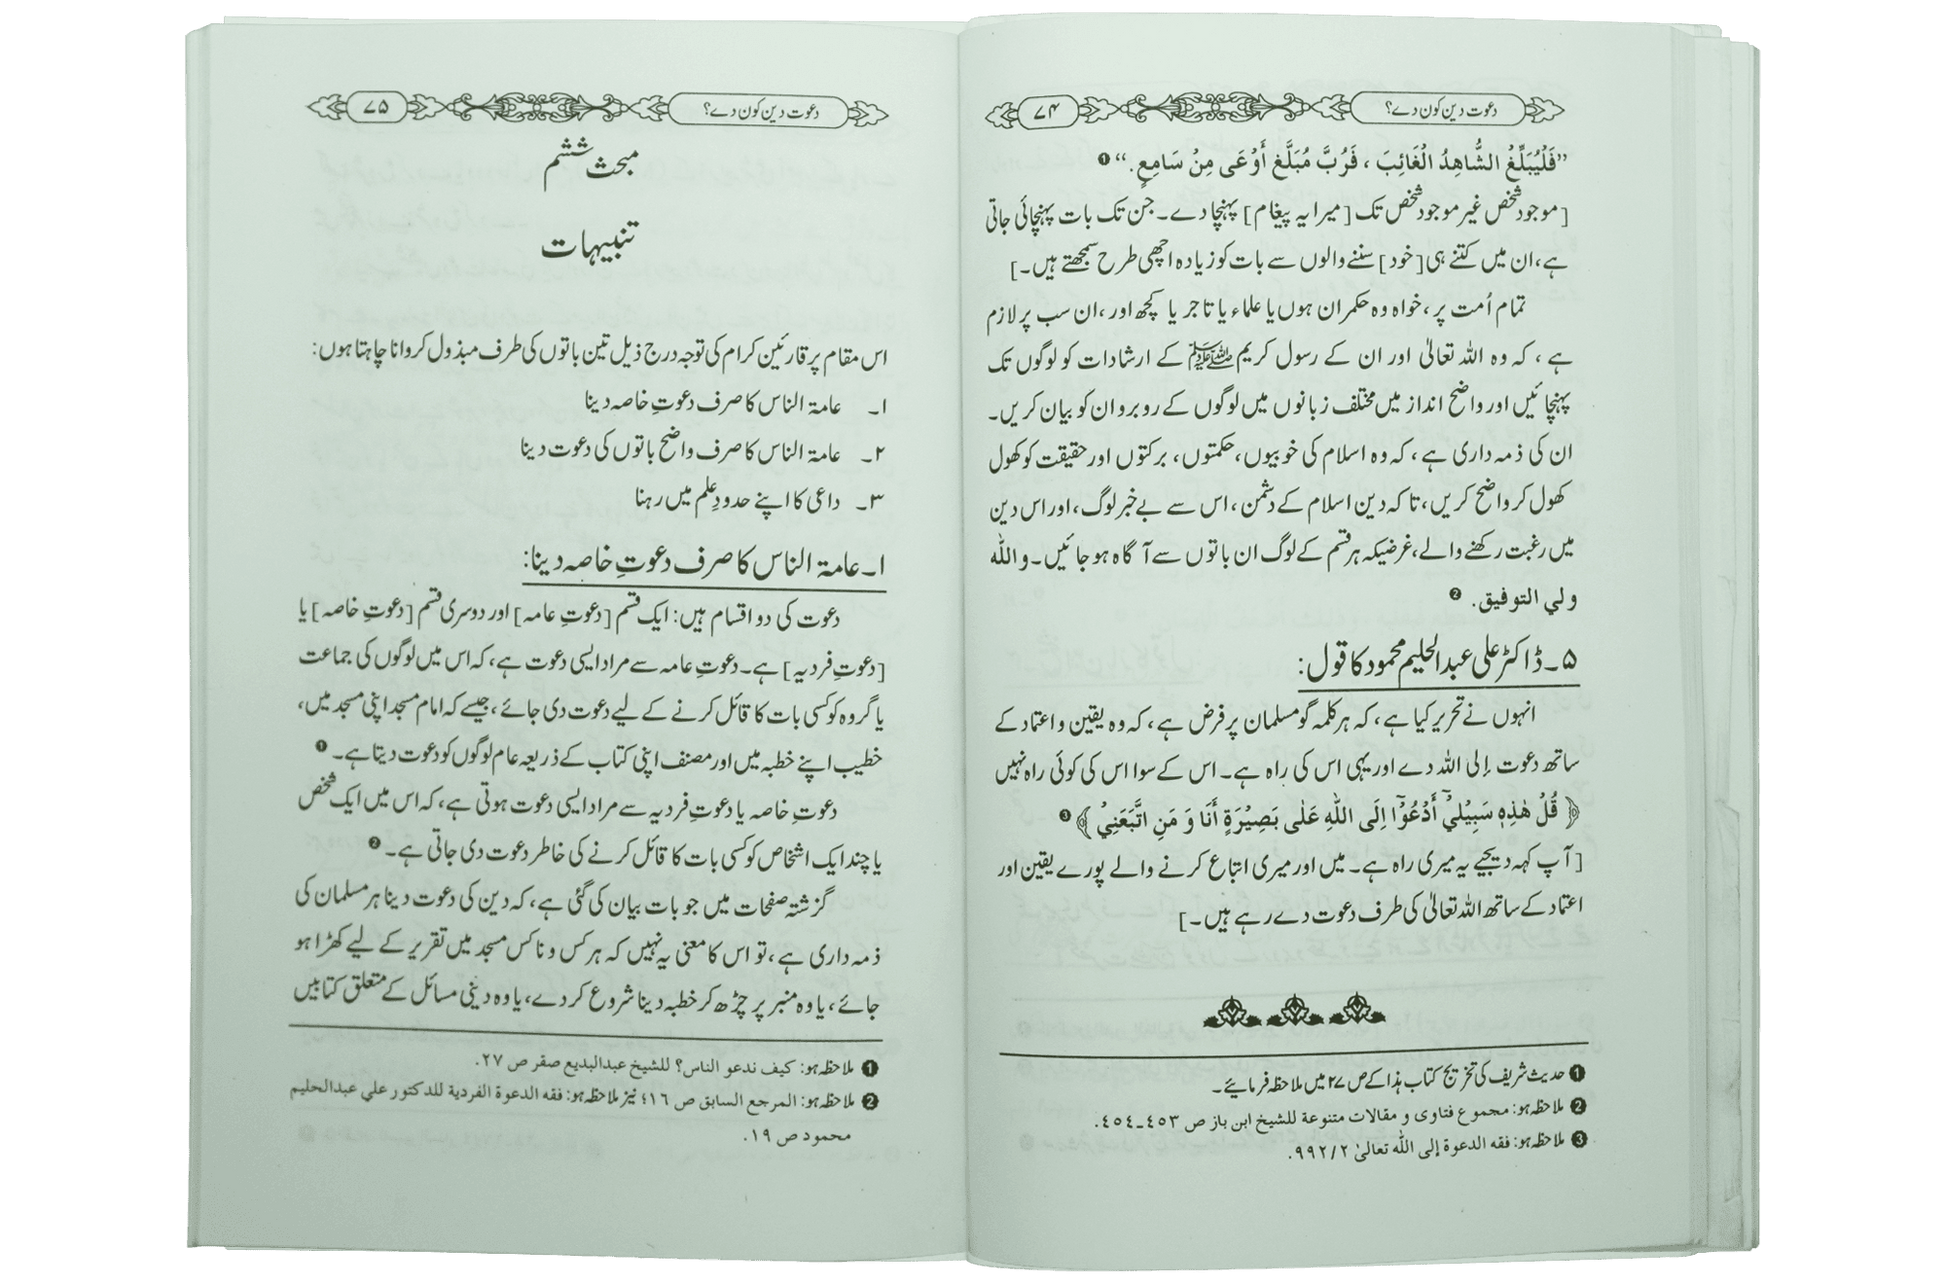 دعوت دین کون دے؟
۷۴
”فَلْيُبَلِّغْ الشَّاهِدُ الْغَائِبَ ، فَرُبَّ مُبَلَّغٍ أَوْعَى مِنْ سَامِعٍ.“ ❶
[موجود شخص غیر موجود شخص تک [میرا یہ پیغام] پہنچا دے۔ جن تک بات پہنچائی جاتی
ہے، ان میں کتنے ہی [خود] سننے والوں سے بات کو زیادہ اچھی طرح سمجھتے ہیں۔]
تمام اُمت پر، خواہ وہ حکمران ہوں یا علماء یا تاجر یا کچھ اور، ان سب پر لازم
ہے، کہ وہ اللہ تعالیٰ اور ان کے رسول کریم ﷺ کے ارشادات کو لوگوں تک
پہنچائیں اور واضح انداز میں مختلف زبانوں میں لوگوں کے روبرو ان کو بیان کریں۔
ان کی ذمہ داری ہے، کہ وہ اسلام کی خوبیوں، حکمتوں، برکتوں اور حقیقت کو کھول
کھول کر واضح کریں، تاکہ دین اسلام کے دشمن، اس سے بے خبر لوگ، اور اس دین
میں رغبت رکھنے والے، غرضیکہ ہر قسم کے لوگ ان باتوں سے آگاہ ہو جائیں۔ واللہ
ولي التوفيق. ❷
۵۔ ڈاکٹر علی عبدالحلیم محمود کا قول:
انہوں نے تحریر کیا ہے، کہ ہر کلمہ گو مسلمان پر فرض ہے، کہ وہ یقین و اعتماد کے
ساتھ دعوت إلی اللہ دے اور یہی اس کی راہ ہے۔ اس کے سوا اس کی کوئی راہ نہیں
﴿قُلْ هٰذِهٖ سَبِيْلِيْٓ أَدْعُوْٓا اِلَى اللّٰهِ عَلٰى بَصِيْرَةٍ أَنَا وَ مَنِ اتَّبَعَنِيْ﴾ ❸
[آپ کہہ دیجیے یہ میری راہ ہے۔ میں اور میری اتباع کرنے والے پورے یقین اور
اعتماد کے ساتھ اللہ تعالیٰ کی طرف دعوت دے رہے ہیں۔]
❶ حدیث شریف کی تخریج کتاب ہذا کے ص ۲۷ میں ملاحظہ فرمائیے۔
❷ ملاحظہ ہو: مجموع فتاوى و مقالات متنوعة للشيخ ابن باز ص ٤٥٣-٤٥٤.
❸ ملاحظہ ہو: فقه الدعوة إلى الله تعالىٰ ٩٩٢/٢.
دعوت دین کون دے؟
۷۵
مبحث ششم
تنبیہات
اس مقام پر قارئین کرام کی توجہ درج ذیل تین باتوں کی طرف مبذول کروانا چاہتا ہوں:
۱۔ عامۃ الناس کا صرف دعوتِ خاصہ دینا
۲۔ عامۃ الناس کا صرف واضح باتوں کی دعوت دینا
۳۔ داعی کا اپنے حدودِ علم میں رہنا
۱۔ عامۃ الناس کا صرف دعوتِ خاصہ دینا:
دعوت کی دو اقسام ہیں: ایک قسم [دعوتِ عامہ] اور دوسری قسم [دعوتِ خاصہ] یا
[دعوتِ فردیہ] ہے۔ دعوتِ عامہ سے مراد ایسی دعوت ہے، کہ اس میں لوگوں کی جماعت
یا گروہ کو کسی بات کا قائل کرنے کے لیے دعوت دی جائے، جیسے کہ امام مسجد اپنی مسجد میں،
خطیب اپنے خطبہ میں اور مصنف اپنی کتاب کے ذریعہ عام لوگوں کو دعوت دیتا ہے۔ ❶
دعوتِ خاصہ یا دعوتِ فردیہ سے مراد ایسی دعوت ہوتی ہے، کہ اس میں ایک شخص
یا چند ایک اشخاص کو کسی بات کا قائل کرنے کی خاطر دعوت دی جاتی ہے۔ ❷
گزشتہ صفحات میں جو بات بیان کی گئی ہے، کہ دین کی دعوت دینا ہر مسلمان کی
ذمہ داری ہے، تو اس کا معنی یہ نہیں کہ ہر کس و ناکس مسجد میں تقریر کے لیے کھڑا ہو
جائے، یا وہ منبر پر چڑھ کر خطبہ دینا شروع کر دے، یا وہ دینی مسائل کے متعلق کتابیں
❶ ملاحظہ ہو: كيف ندعو الناس؟ للشيخ عبدالبديع صقر ص ٢٧.
❷ ملاحظہ ہو: المرجع السابق ص ١٦؛ نیز ملاحظہ ہو: فقه الدعوة الفردية للدكتور علي عبدالحليم
محمود ص ١٩.